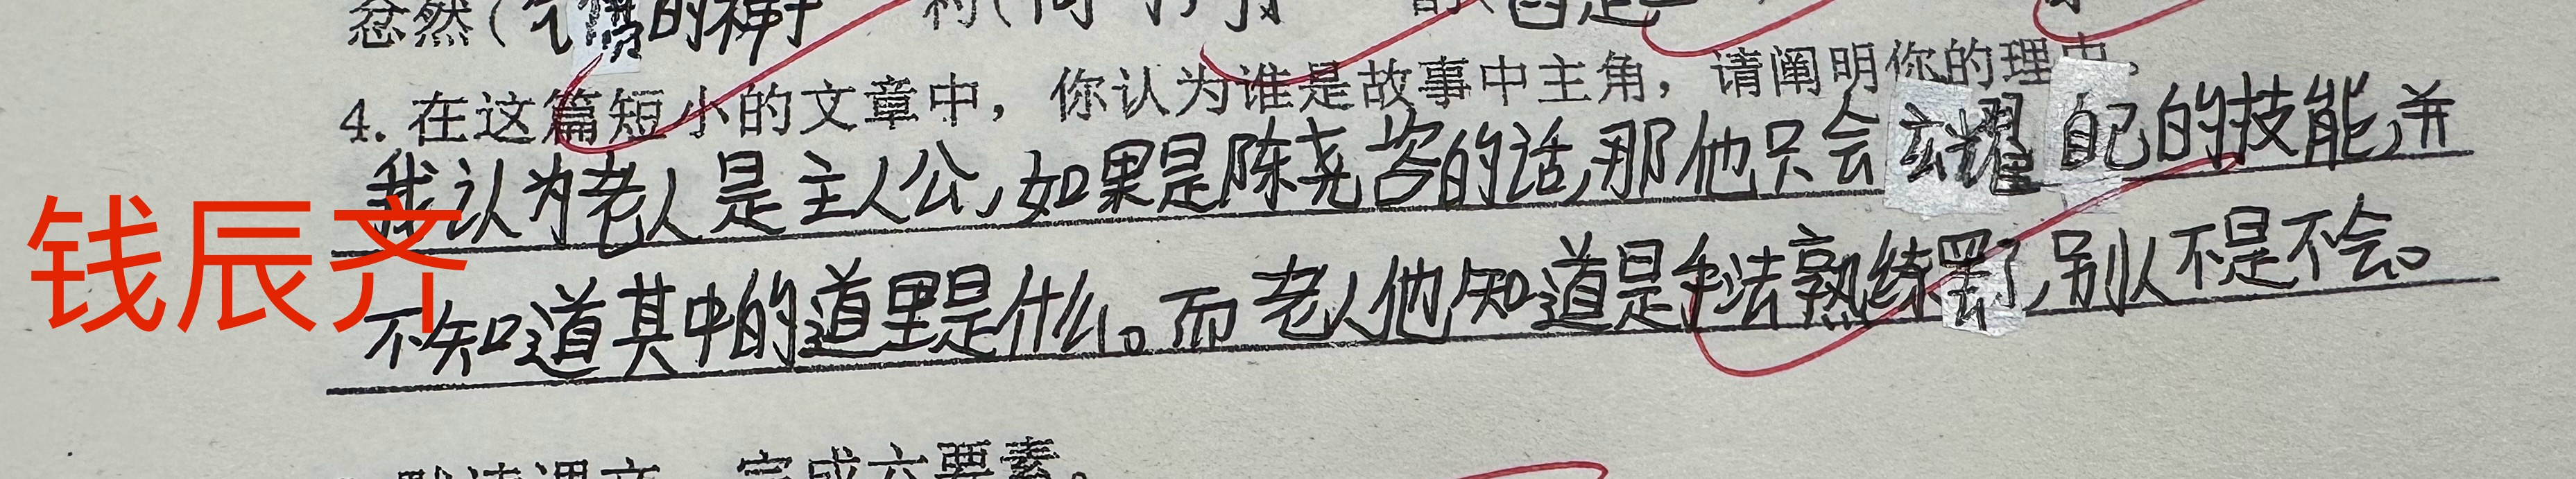 忿然(气愤的样子
4. 在这篇短小的文章中，你认为谁是故事中主角，请阐明你的理由。
我认为老人是主人公,如果是陈尧咨的话,那他只会炫耀自己的技能,并
钱辰齐
不知道其中的道理是什么。而老人他知道是手法熟练罢了,别人不是不会。
默读课文，完成六要素。